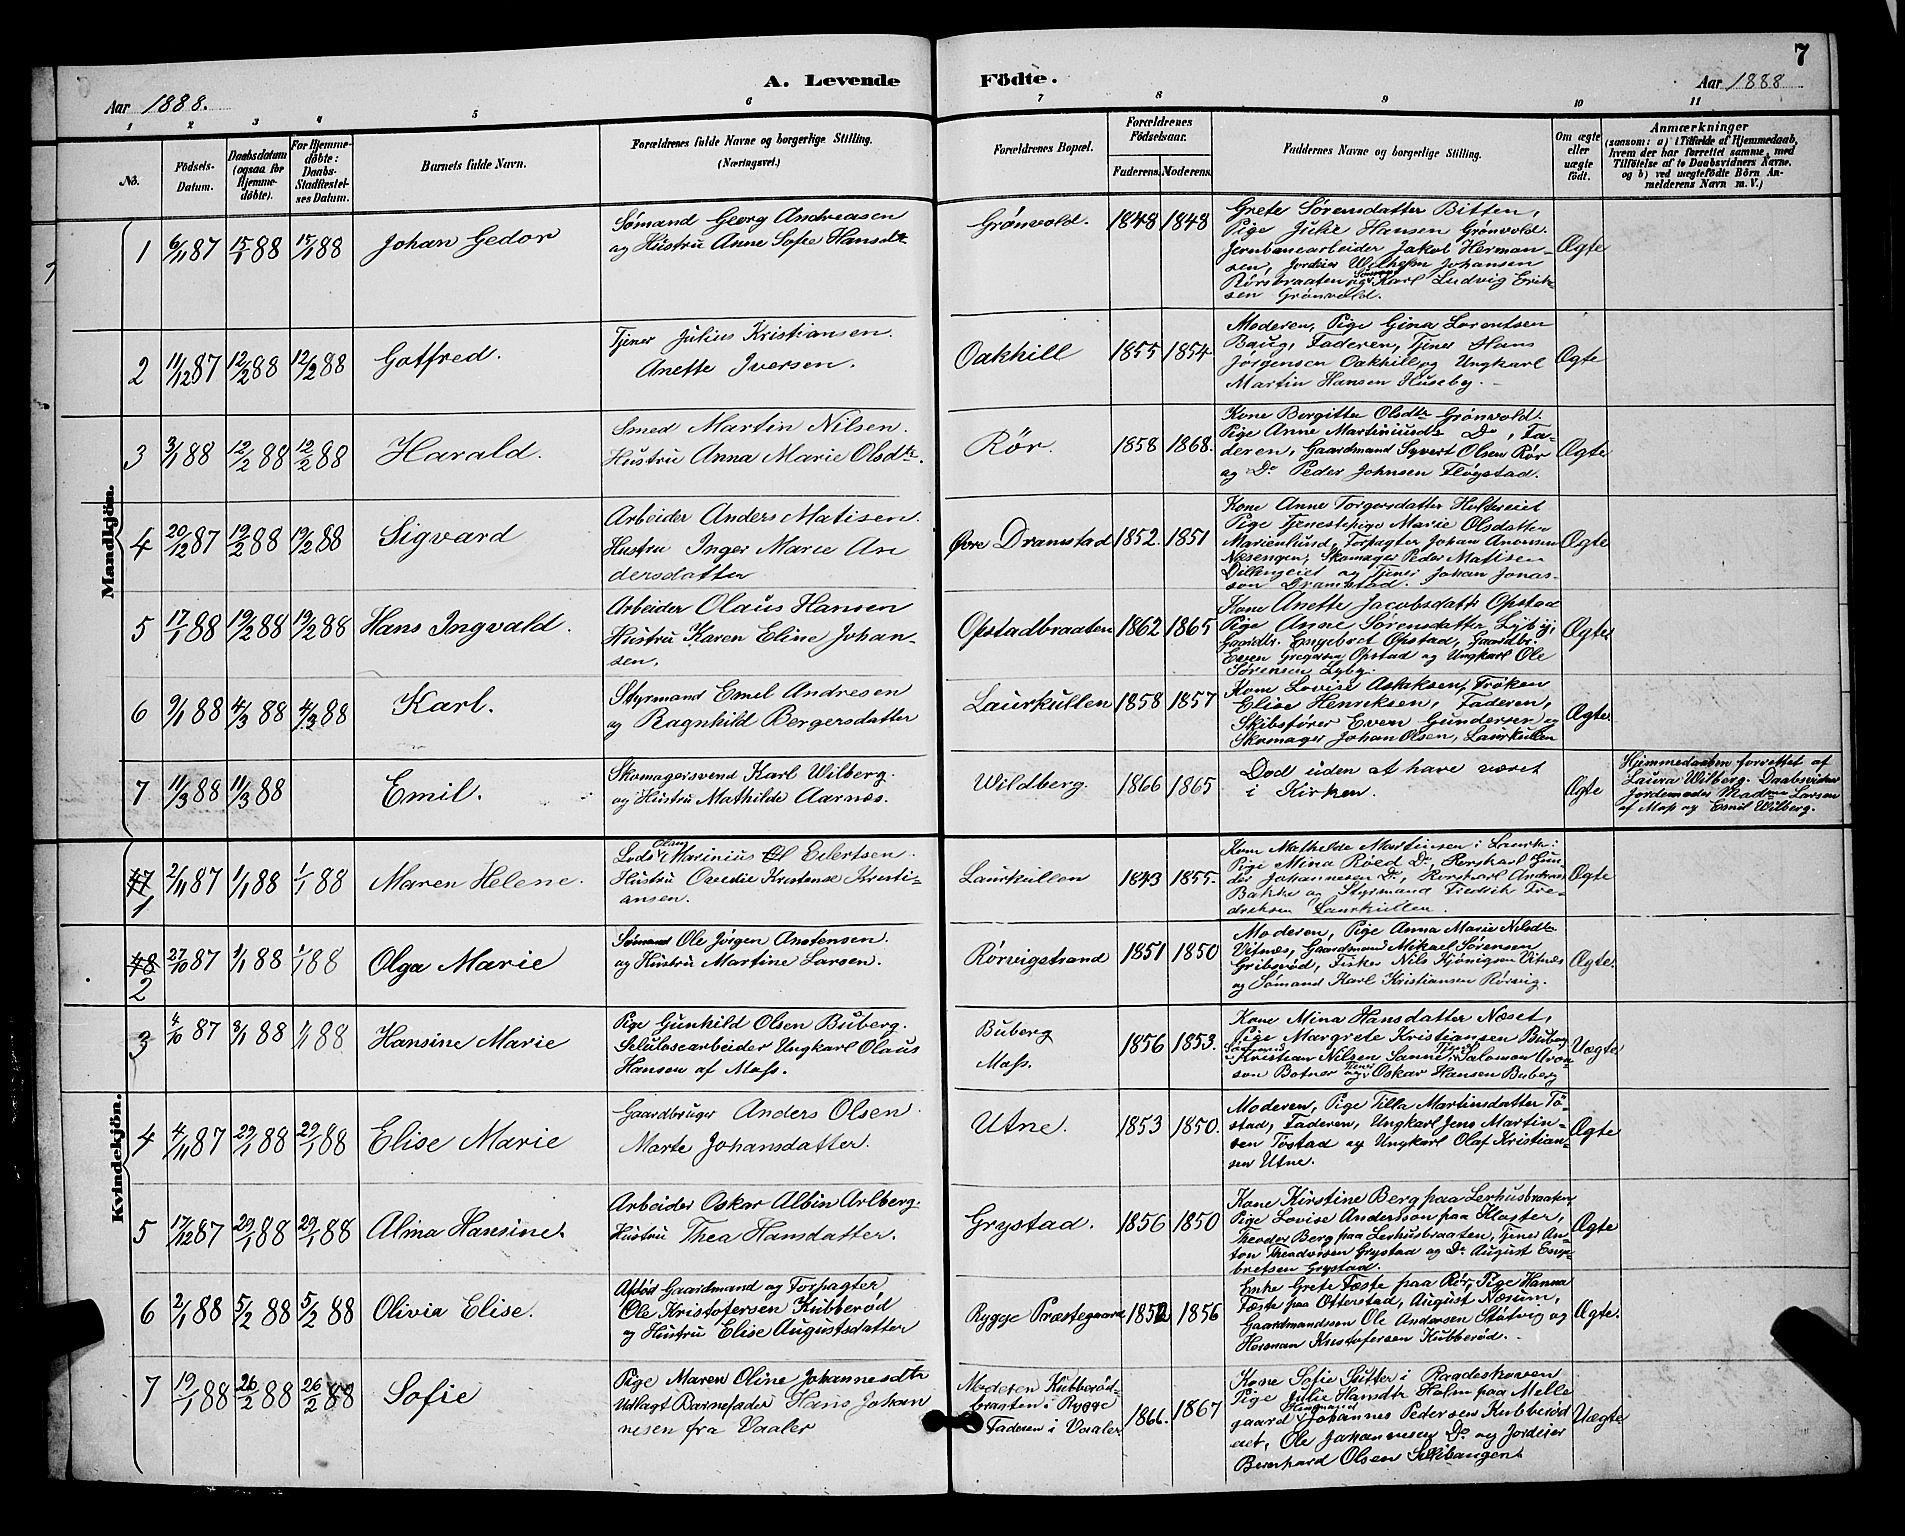 7
A. Levende Födte.
Aar 1888. Aar 1888
1 2 3 4 5 6 7 8 9 10 11
No.
Födsels-
Datum.
Daabsdatum
(ogsaa for
Hjemme-
døbte).
For Hjemme-
døbte:
Daabs-
Stadfæstel-
ses Datum.
Barnets fulde Navn.
Forældrenes fulde Navne og borgerlige Stilling.
(Næringsvei.)
Forældrenes Bopæl.
Forældrenes
Födselsaar.
Faderens. Moderens.
Faddernes Navne og borgerlige Stilling.
Om ægte
eller
uægte
født.
Anmærkninger
(saasom: a) i Tilfælde af Hjemmedaab,
hvem der har forrettet samme, med
Tilföielse af to Daabsvidners Navne,
og b) ved uægtefödte Börn An-
melderens Navn m. V.)
Mandkjön.
1 6/11 87 15/1 88 15/1 88 Johan Gedor
Sømand Georg Andreasen
og Hustru Anne Sofie Hansdtr
Grønvold. 1848 1848
Grete Sørensdatter Bitten,
Pige Julie Hansen Grønvold.
Jernbanearbeider Jakob Herman-
sen, Jordeier Wilhelm Johansen
Rørsbraaten og Sømand Karl Ludvig Erik-
sen Grønvold.
Ægte
2 11/12 87 12/2 88 12/2 88 Gotfred.
Tjener Julius Kristiansen.
Anette Iversen.
Oakhill 1855 1854
Moderen, Pige Gina Lorentsen
Baug, Faderen, Tjener Hans
Jørgensen Oakhill og Ungkarl
Martin Hansen Huseby.
Ægte
3 3/1 88 12/2 88 12/2 88 Harald.
Smed Martin Nilsen.
Hustru Anna Marie Olsdtr.
Rør. 1858 1868.
Kone Bergitte Olsdtr Grønvold.
Pige Anne Martiniusdtr Do, Fa-
deren, Gaardmand Syvert Olsen Rør
og Do Peder Johnsen Fløystad.
Ægte
4 20/12 87 19/2 88 19/2 88 Sigvard
Arbeider Anders Matisen.
Hustru Inger Marie An
dersdatter
Øvre Dramstad 1852. 1851
Kone Anne Torgersdatter
Pige Tjenestepige Marie Olsdatter
Marienlund, Forpagter Johan Anonsen
Næsengen, Skomager Peder Matisen
Dillengeiet og Tjener Johan Jonas-
son Dramstad.
Ægte
5 17/1 88 19/2 88 19/2 88 Hans Ingvald.
Arbeider Olaus Hansen
Hustru Karen Eline Johan-
sen.
Opstadbraaten 1862 1865
Kone Anette Jacobsdattr Opstad
Pige Anne Sørensdatter Lyby,
Gaardbr. Engebret Opstad, Gaardbr.
Even Gregersen Opstad og Ungkarl Ole
Sørensen Lyby.
Ægte
6 9/1 88 4/3 88 4/3 88 Karl.
Styrmand Emil Andresen
og Ragnhild Bergersdatter
Laurkullen 1858 1857
Kone Lovise Frøken
Elise Henriksen, Faderen,
Skibsfører Even Gundersen og
Skomager Johan Olsen, Laurkullen
Ægte
7 11/3 88 11/3 88 Emil.
Skomagersvend Karl Wilberg.
og Hustru Mathilde Aarnæs.
Wildberg. 1866 1865
Død uden at have været
i Kirken.
Ægte
Hjemmedaaben forrettet af
Laura Wilberg. Daabsvidner
Jordemoder Madme Larsen
af Moss og Emil Wilberg.
Kvindekjön.
47
1 2/11 87 1/1 88 1/1 88 Maren Helene.
Lods Olaus Marinius Eilertsen.
Hustru Ovidie Kristense Kristi-
ansen.
Laurkullen 1843 1855.
Kone Mathilde Martinsen i Laurk:
Pige Mina Røed Do, Rorskarl Gun-
der Johannesen Do, Rorskarl Andreas
Bakke og Styrmand Fredrik Fre-
driksen Laurkullen.
Ægte
48
2 27/10 87 1/1 88 1/1 88 Olga Marie
Sømand Ole Jørgen Anstensen.
og Hustru Martine Larsen.
Rørvigstrand 1851 1850
Moderen, Pige Anna Marie Nilsdtr
Vitnæs, Gaardmand Mikael Sørensen
Gribsrød, Fisker Nils Kjønigsen Vitnæs
og Sømand Karl Kristiansen Rørvig.
Ægte.
3 4/10 87 3/1 88 1/1 88 Hansine Marie
Pige Gunhild Olsen Buberg.
Selulosearbeider Ungkarl Olaus
Hansen af Moss.
Buberg
Moss. 1856 1853.
Kone Mina Hansdatter Næset,
Pige Margrete Kristiansen Buberg
Kristian Nilsen Sanne, Tjener Salomon Aron-
son Botner og Tjener Oskar Hansen Buberg
Uægte
4 4/11 87 29/1 88 29/1 88 Elise Marie
Gaardbruger Anders Olsen.
Marte Johansdatter.
Utne. 1853 1850.
Moderen, Pige Tilla Martinsdatter Tø-
stad, Faderen, Ungkarl Jens Martin-
sen Tøstad og Ungkarl Olaf Kristian-
sen Utne.
Ægte
5 17/12 87 29/1 88 29/1 88 Alma Hansine.
Arbeider Oskar Albin Arlberg.
Hustru Thea Hansdatter.
Grystad. 1856 1850
Kone Kirstine Berg paa Lerhusbraaten,
Pige Lovise Anderson paa Kloster,
Theodor Berg paa Lerhusbraaten, Tjener An-
ton Theodorsen Grystad og Do August Enge-
bretsen Grystad.
Ægte
6 2/1 88 5/2 88 5/2 88 Olivia Elise.
Afdød Gaardmand og Forpagter,
Ole Kristofersen Kubberød
og Hustru Elise Augustsdatter
Rygge Præstegaard 1852 1856
Enke Grete Fæste paa Rør, Pige Hanna
Fæste paa Otterstad, August Næsum,
Gaardmandssøn Ole Andersen Støtvig og
Herman Kristofersen Kubberød.
Ægte.
7 19/1 88 26/2 88 26/2 88 Sofie
Pige Maren Oline Johannesdtr
Udlagt Barnefader Hans Johan
nesen fra Vaaler
Moderen Kubberød-
braaten i Rygge
Faderen i Vaaler 1866. 1867
Kone Sofie Sutter i Rogdeskoven
Pige Julie Hansdtr Holm paa Melle
gaard Johannes Pedersen Kubberød
eiet, Ole Johannesen Do og Jordeier
Bernhard Olsen
Uægte